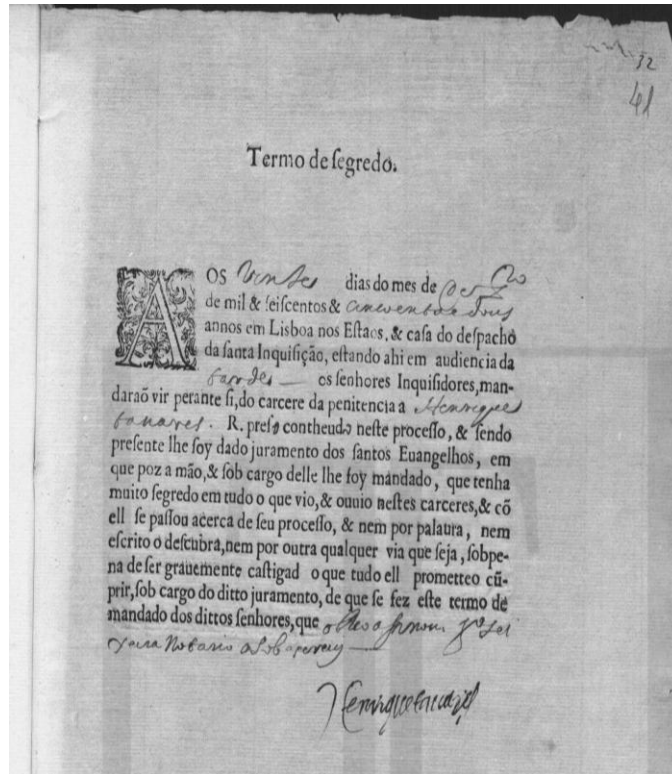 32
41
Termo de ſegredo.
AOS Vinte dias do mes de
de mil & ſeiſcentos & cincoenta e dous
annos em Lisboa nos Eſtaos, & caſa do deſpacho
da ſanta Inquiſição, eſtando ahi em audiencia da
tarde os ſenhores Inquiſidores, man-
daraõ vir perante ſi, do carcere da penitencia a Henrique
tavares. R. preſo contheudo neſte proceſſo, & ſendo
preſente lhe foy dado juramento dos ſantos Euangelhos, em
que poz a mão, & ſob cargo delle lhe foy mandado, que tenha
muito ſegredo em tudo o que vio, & ouuio neſtes carceres, & cõ
ell ſe paſſou acerca de ſeu proceſſo, & nem por palaura, nem
eſcrito o deſcubra, nem por outra qualquer via que ſeja, ſobpe-
na de ſer grauemente caſtigad o que tudo ell prometteo cũ-
prir, ſob cargo do ditto juramento, de que ſe fez eſte termo de
mandado dos dittos ſenhores, que o Reo aſinou
Notario o ſobeſcreuy
Henrique